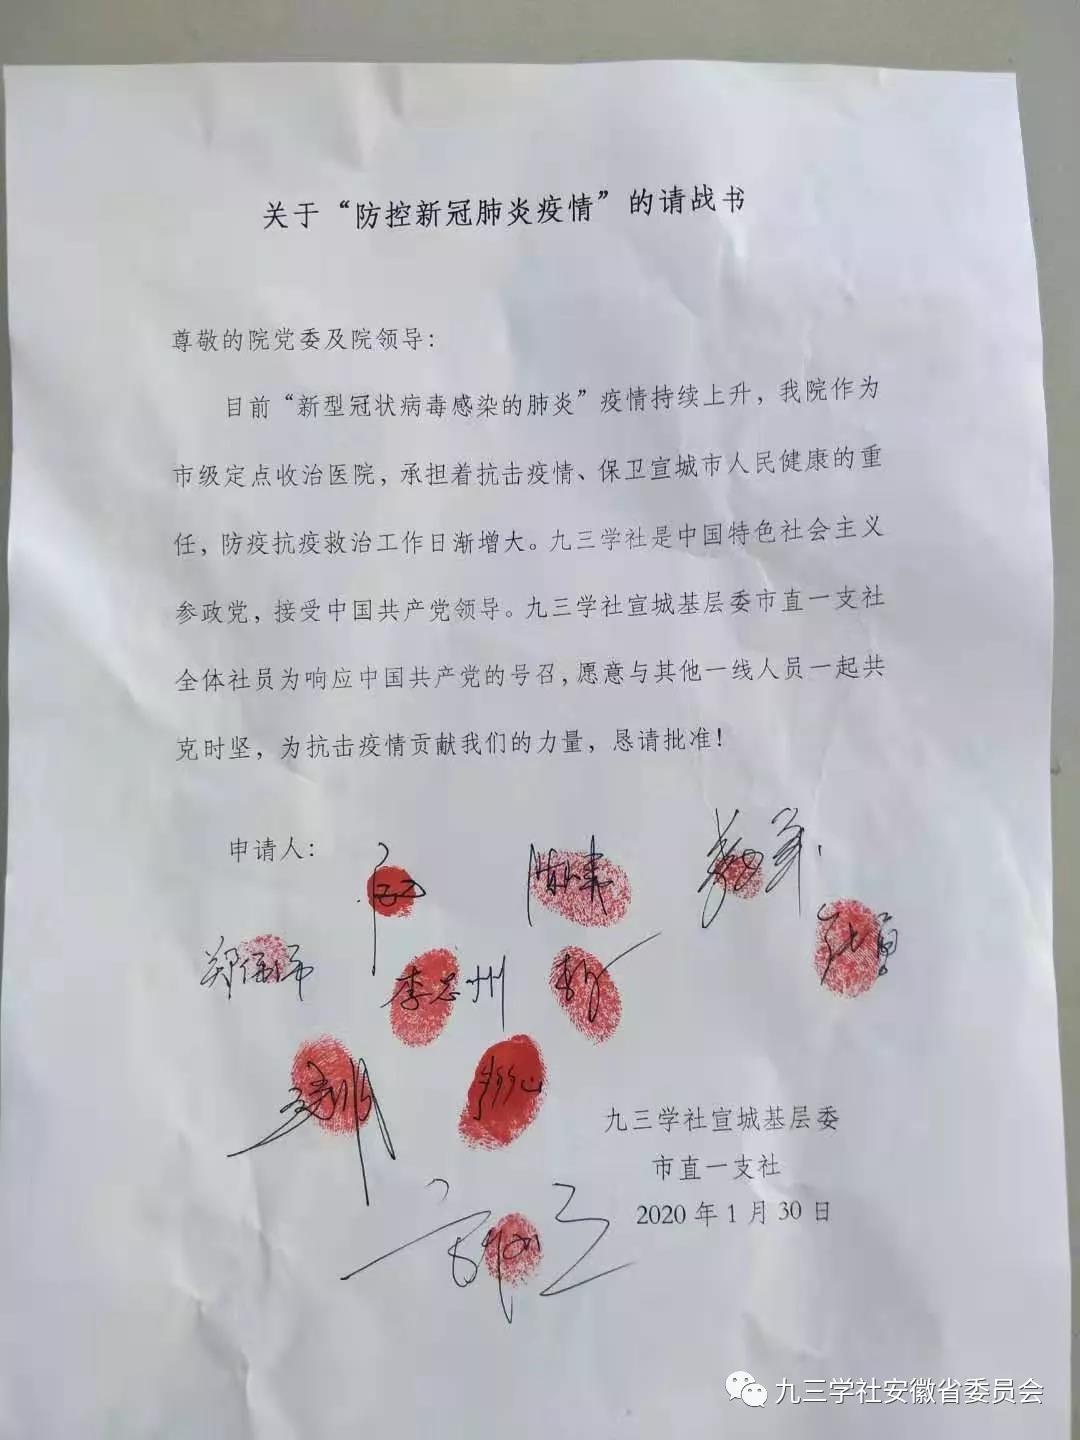 关于“防控新冠肺炎疫情”的请战书
尊敬的院党委及院领导：
目前“新型冠状病毒感染的肺炎”疫情持续上升，我院作为
市级定点收治医院，承担着抗击疫情、保卫宣城市人民健康的重
任，防疫抗疫救治工作日渐增大。九三学社是中国特色社会主义
参政党，接受中国共产党领导。九三学社宣城基层委市直一支社
全体社员为响应中国共产党的号召，愿意与其他一线人员一起共
克时坚，为抗击疫情贡献我们的力量，恳请批准！
申请人：
李志州
九三学社宣城基层委
市直一支社
2020年1月30日
九三学社安徽省委员会